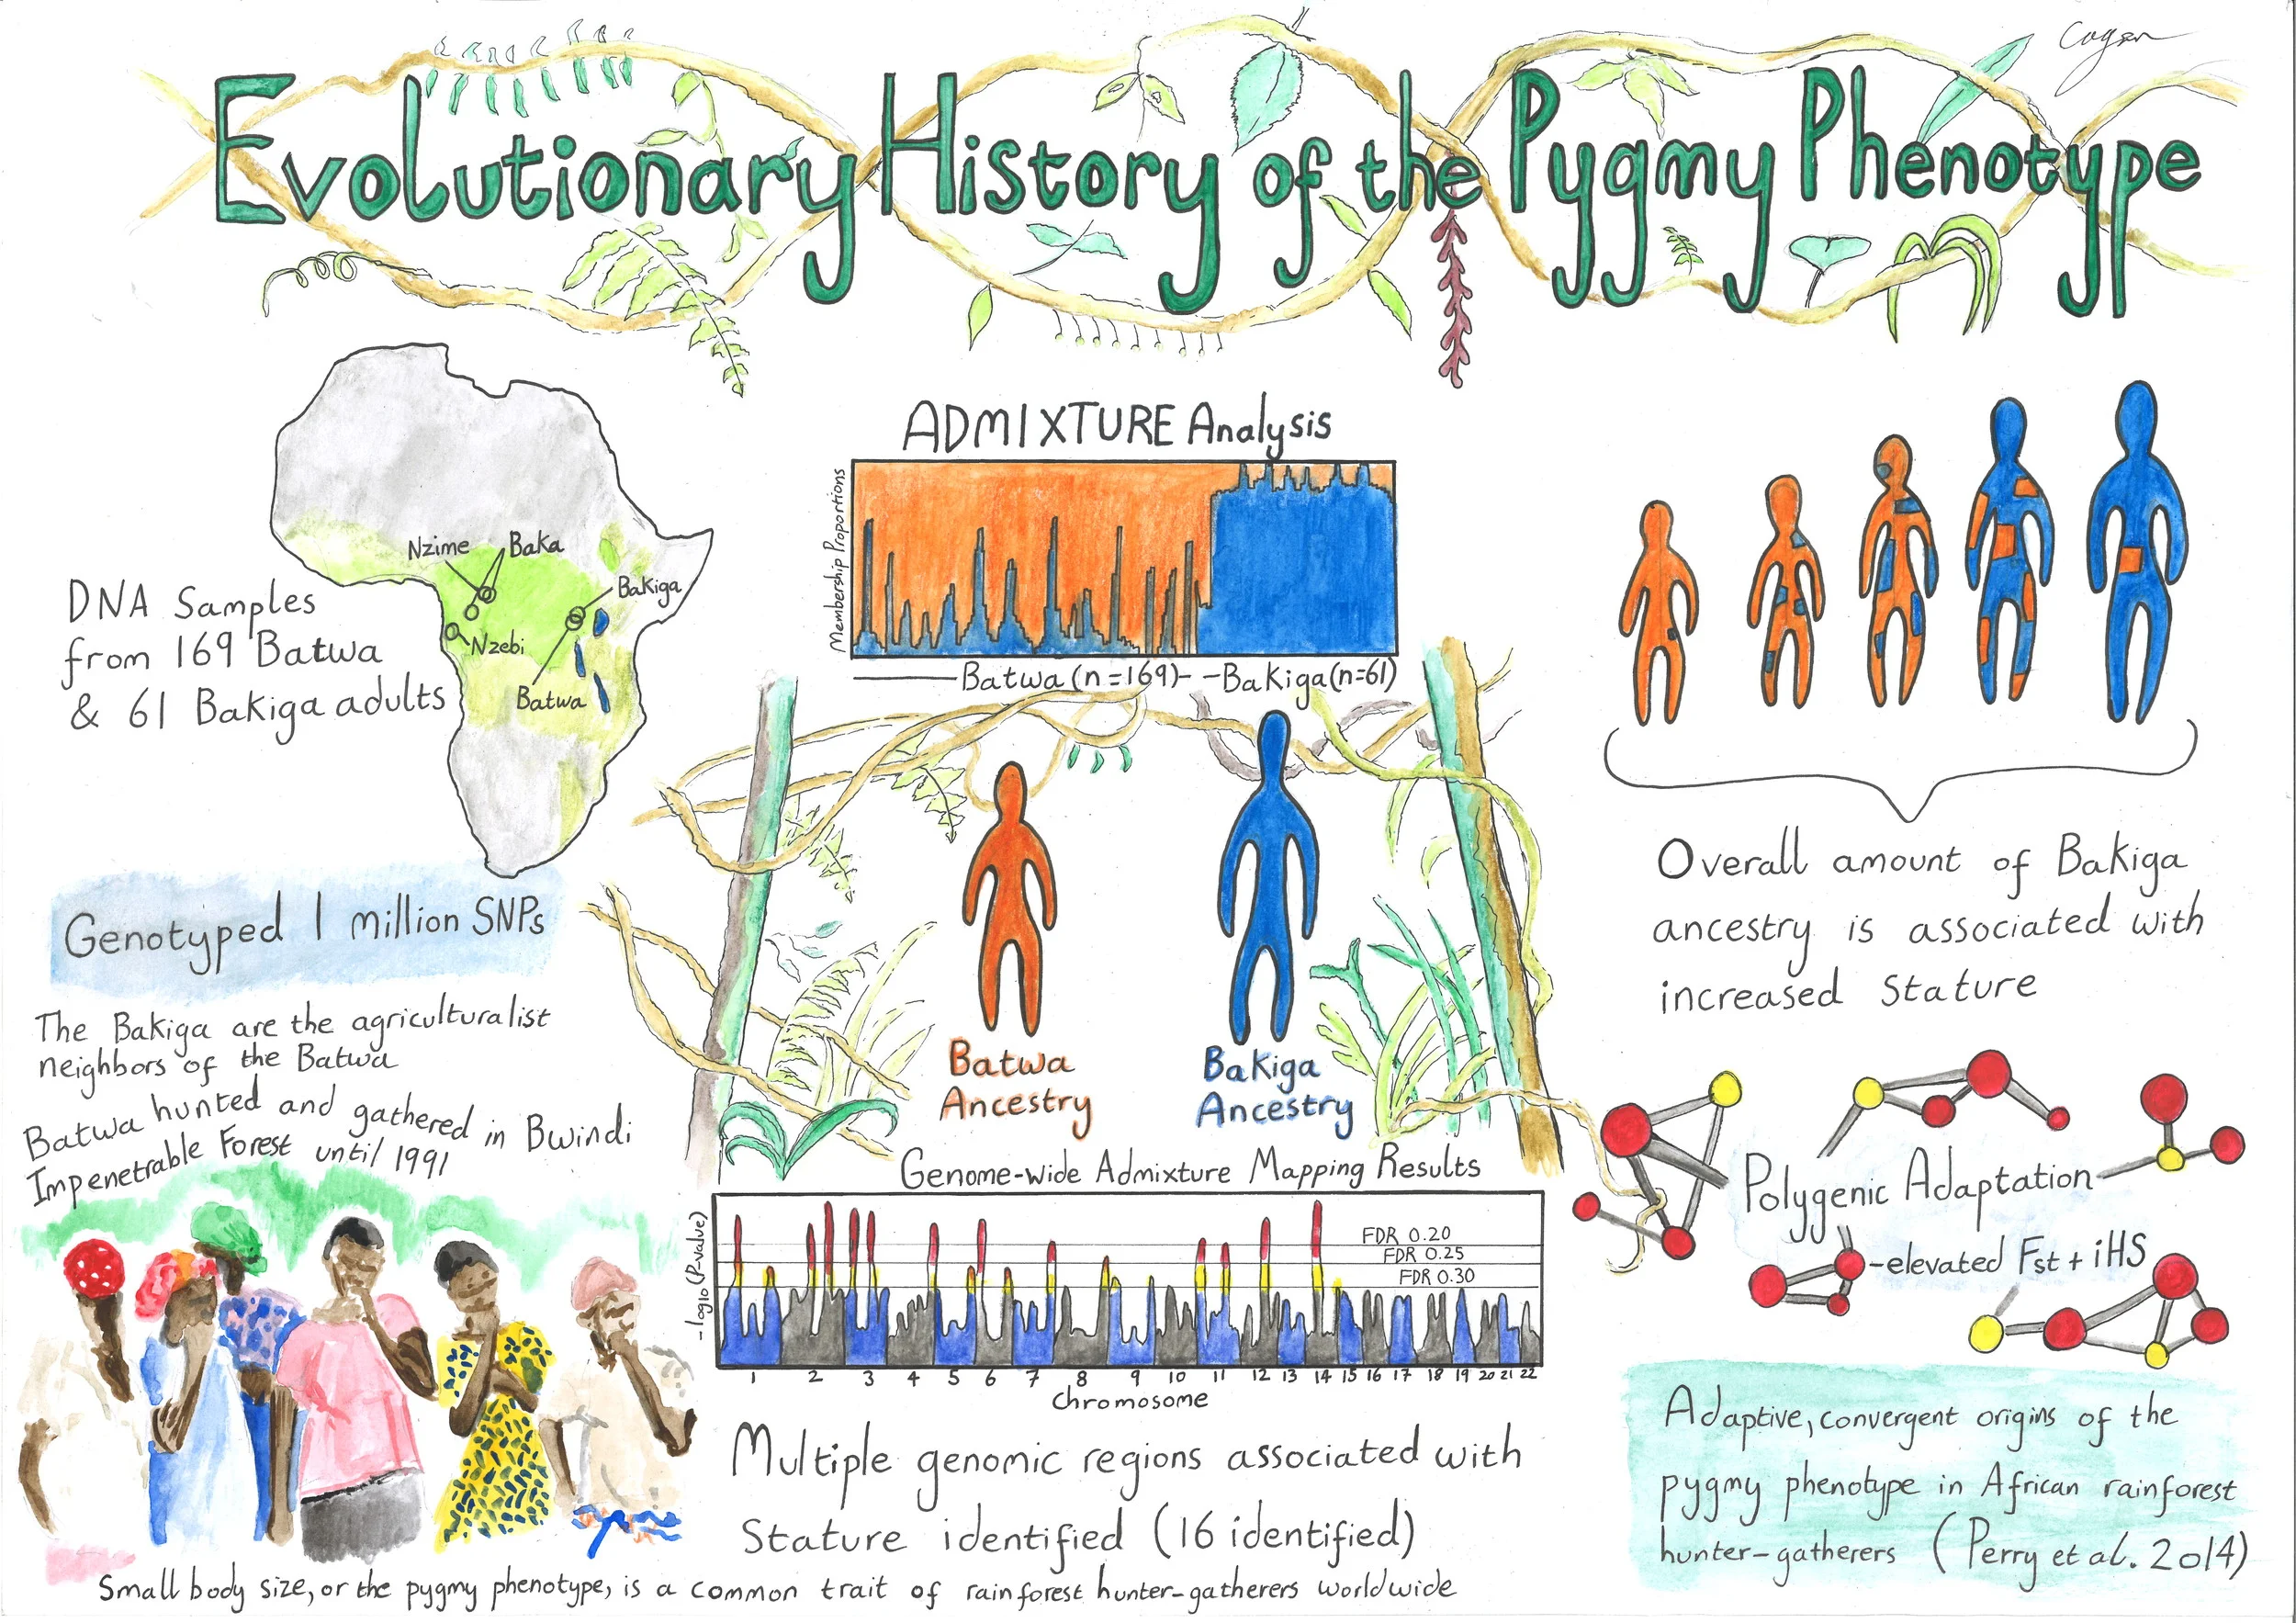 Evolutionary History of the Pygmy Phenotype
Nzime
Baka
Bakiga
Nzebi
Batwa
DNA Samples
from 169 Batwa
& 61 Bakiga adults
Genotyped 1 million SNPs
The Bakiga are the agriculturalist
neighbors of the Batwa
Batwa hunted and gathered in Bwindi
Impenetrable Forest until 1991
ADMIXTURE Analysis
Membership Proportions
Batwa (n=169)
Bakiga (n=61)
Batwa
Ancestry
Bakiga
Ancestry
Genome-wide Admixture Mapping Results
-log10 (P-value)
FDR 0.20
FDR 0.25
FDR 0.30
1 2 3 4 5 6 7 8 9 10 11 12 13 14 15 16 17 18 19 20 21 22
Chromosome
Multiple genomic regions associated with
Stature identified (16 identified)
Overall amount of Bakiga
ancestry is associated with
increased Stature
Polygenic Adaptation
-elevated Fst + iHS
Adaptive, convergent origins of the
pygmy phenotype in African rainforest
hunter-gatherers (Perry et al. 2014)
Small body size, or the pygmy phenotype, is a common trait of rainforest hunter-gatherers worldwide